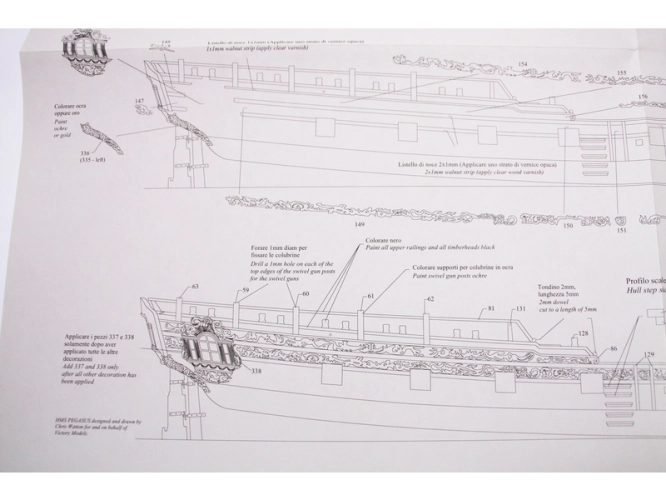 149
Listello di noce 1x1mm (Applicare uno strato di vernice opaca)
1x1mm walnut strip (apply clear varnish)
154
155
156
147
Colorare ocra
oppure oro
Paint
ochre
or gold
336
(335 - left)
Listello di noce 2x1mm (Applicare uno strato di vernice opaca)
2x1mm walnut strip (apply clear wood varnish)
149
150
151
Forare 1mm diam per
fissare le colubrine
Drill a 1mm hole on each of the
top edges of the swivel gun posts
for the swivel guns
Colorare nero
Paint all upper railings and all timberheads black
Colorare supporti per colubrine in ocra
Paint swivel gun posts ochre
Tondino 2mm,
lunghezza 5mm
2mm dowel
cut to a length of 5mm
Profilo scale
Hull step si
63
59
60
61
62
81
131
128
86
129
Applicare i pezzi 337 e 338
solamente dopo aver
applicato tutte le altre
decorazioni
Add 337 and 338 only
after all other decoration has
been applied
338
HMS PEGASUS designed and drawn by
Chris Watton for and on behalf of
Victory Models.